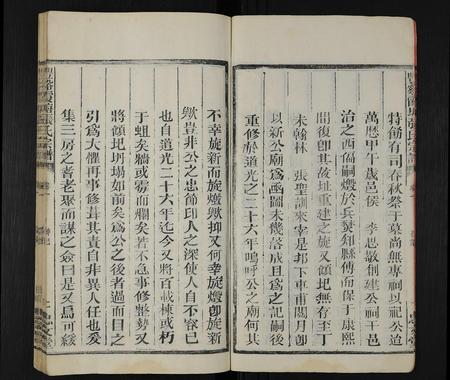 特飭有司春秋祭于墓尚無專祠以祀公迨
萬厯甲午歲邑侯 李思敬創建公祠于
治之西偏嗣燬於兵燹知縣傅而保于康熙
間復即其故址重建之旋又傾圯無存至丁
未翰林 張聖訓來宰是邦下車甫閱月即
以新公廟為亟圖未幾落成且為之記嗣後
重修於道光二十六年嗚呼公之廟何其
不幸旋新而旋燬歟抑又何幸旋燬卽旋新
歟豈非公之忠節印人已深遂使人自不容已
也自道光二十六年迄今又將百載棟或朽
于蛆矣牆或霉而爛矣若不急事修整勢又
將傾圯坍塌如前矣為公之後者過而目之
引為大懼再事修葺其責自非異人任也爰
集三房之耆老聚而謀之僉曰是又烏可緩